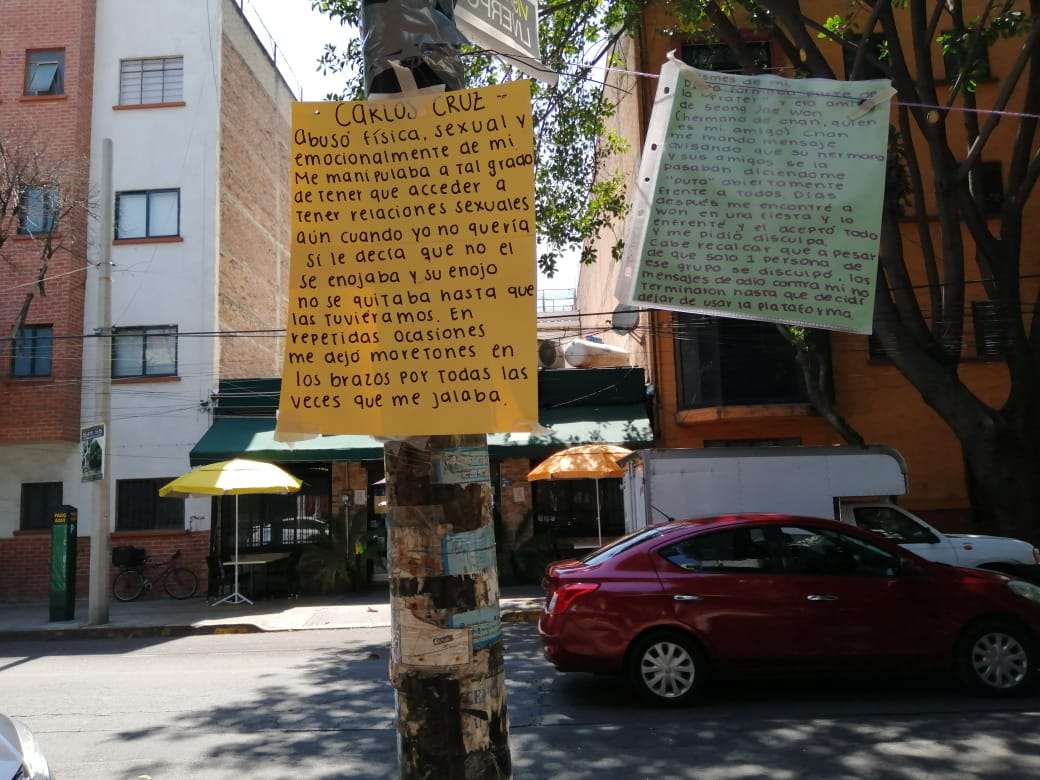 CARLOS CRUZ ~
abusó física, sexual y
emocionalmente de mi
Me manipulaba a tal grado
de tener que acceder a
tener relaciones sexuales
aún cuando yo no quería
Si le decía que no el
se enojaba y su enojo
no se quitaba hasta que
las tuviéramos. En
repetidas ocasiones
me dejó moretones en
los brazos por todas las
veces que me jalaba.
de seong Jae won
(hermano de chan, quien
es mi amigo) Chan
me mando mensaje
avisando que su hermano
y sus amigos se la
pasaban diciendome
"puta" abiertamente
frente a todos Días
después me encontré a
won en una fiesta y lo
enfrenté y el aceptó todo
y me pidió disculpa.
Cabe recalcar que a pesar
de que solo 1 persona de
ese grupo se disculpó, los
mensajes de odio contra mi no
terminaron hasta que decidí
dejar de usar la plataforma